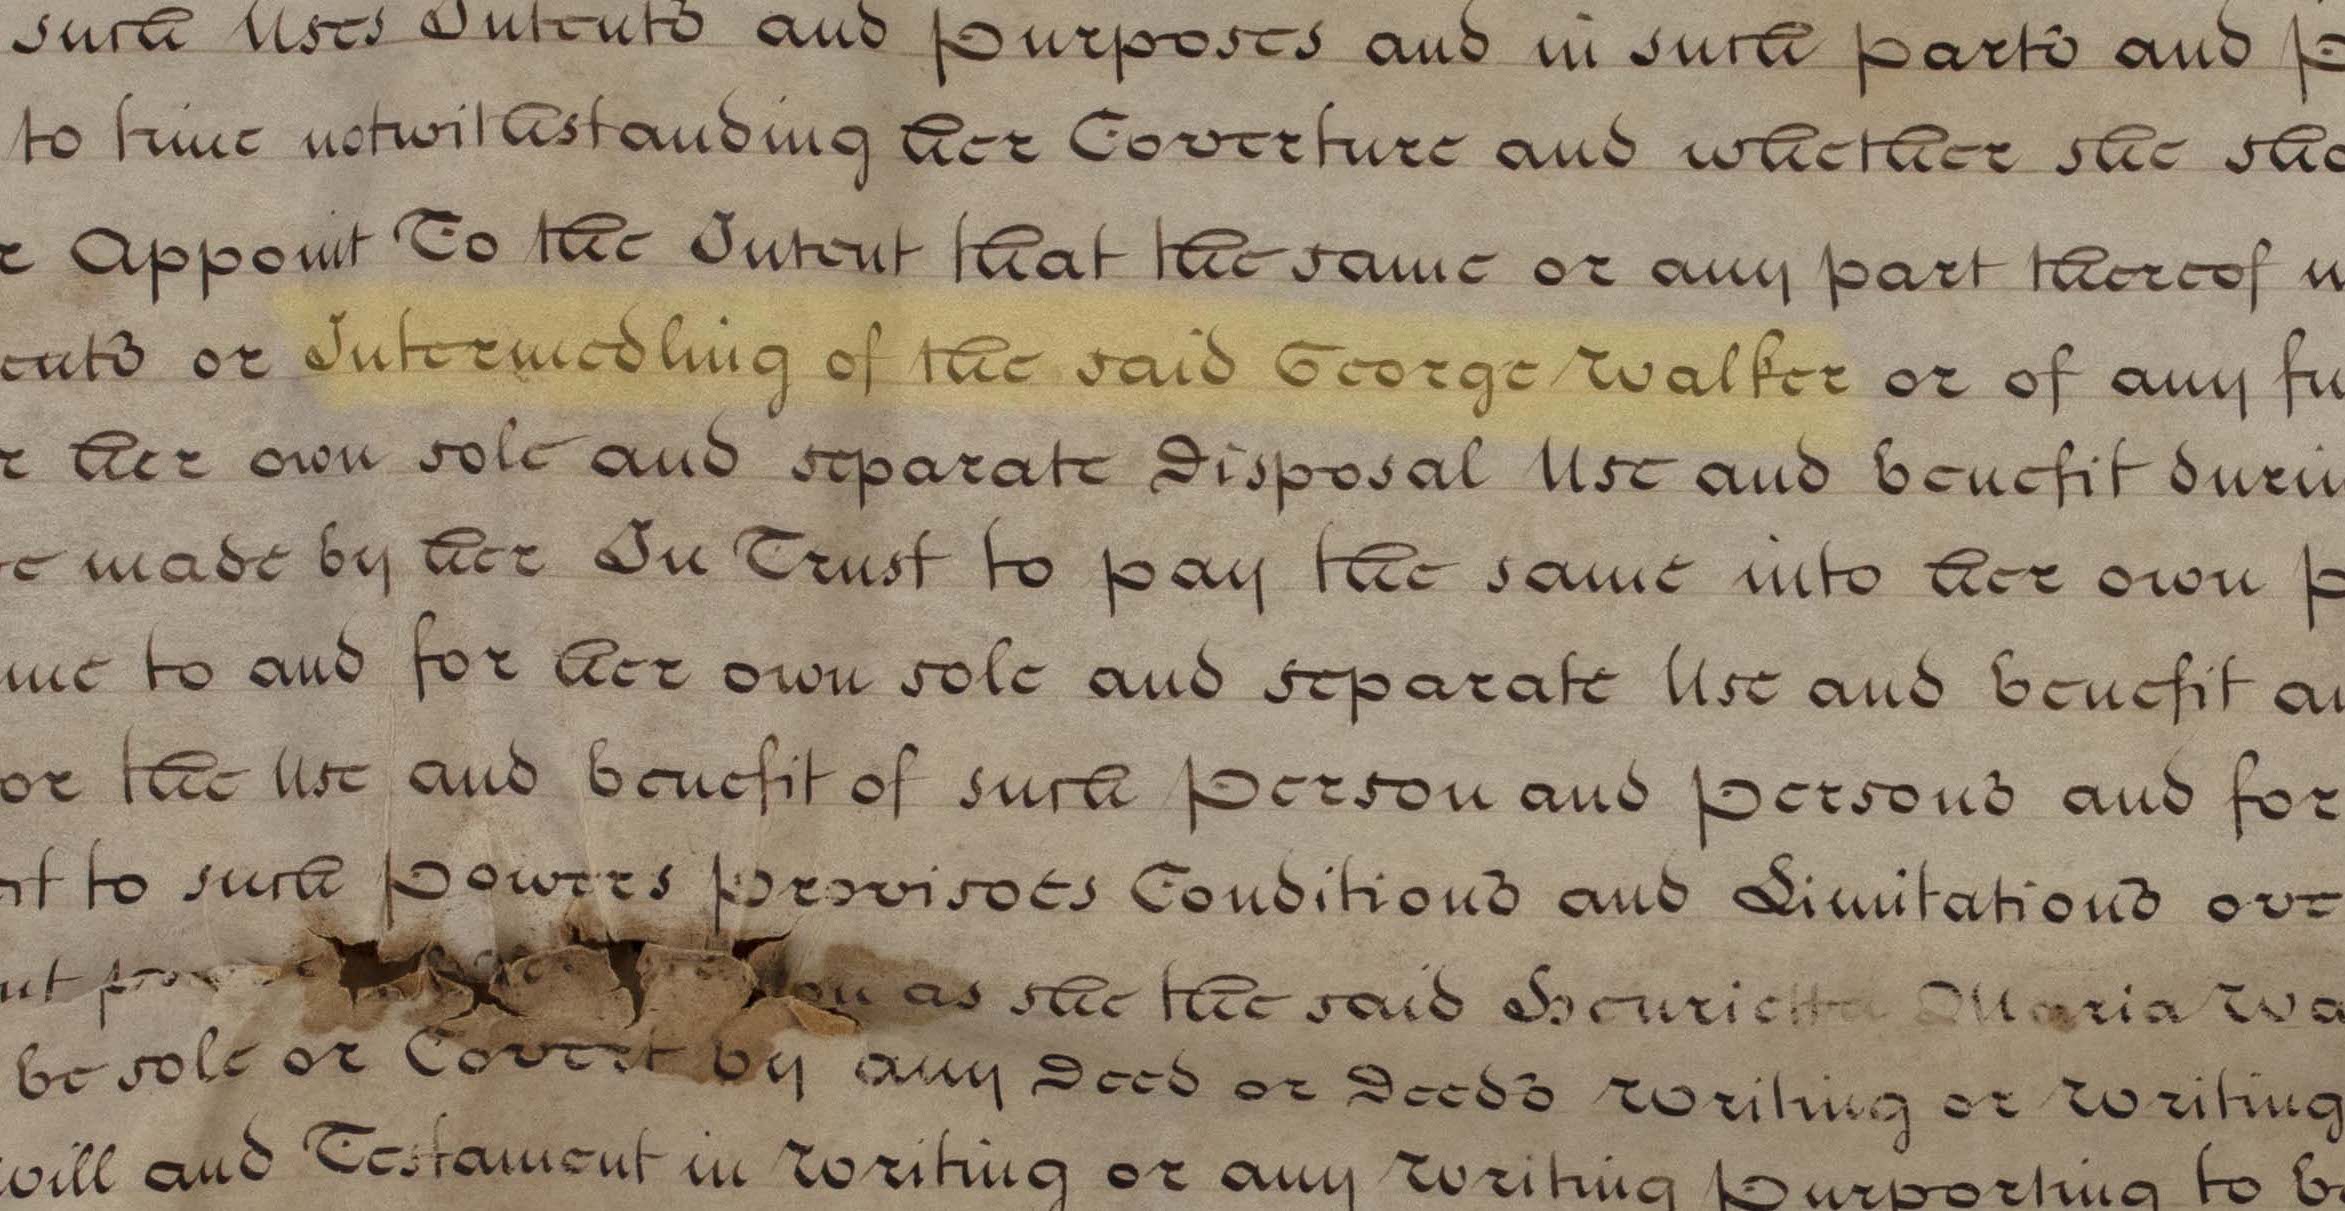 such Uses Intents and purposes and in such parts and
to time notwithstanding her Coverture and whether she
Appoint To the Intent that the same or any part thereof
or Intermedling of the said George Walker or of any
her own sole and separate Disposal Use and benefit
made by her In Trust to pay the same into her own
to and for her own sole and separate Use and benefit
or the Use and benefit of such person and persons and for
to such powers provisoes Conditions and Limitations
as she the said Henrietta Maria
be sole or Covert by any Deed or Deeds Writing or Writing
will and Testament in Writing or any Writing purporting to